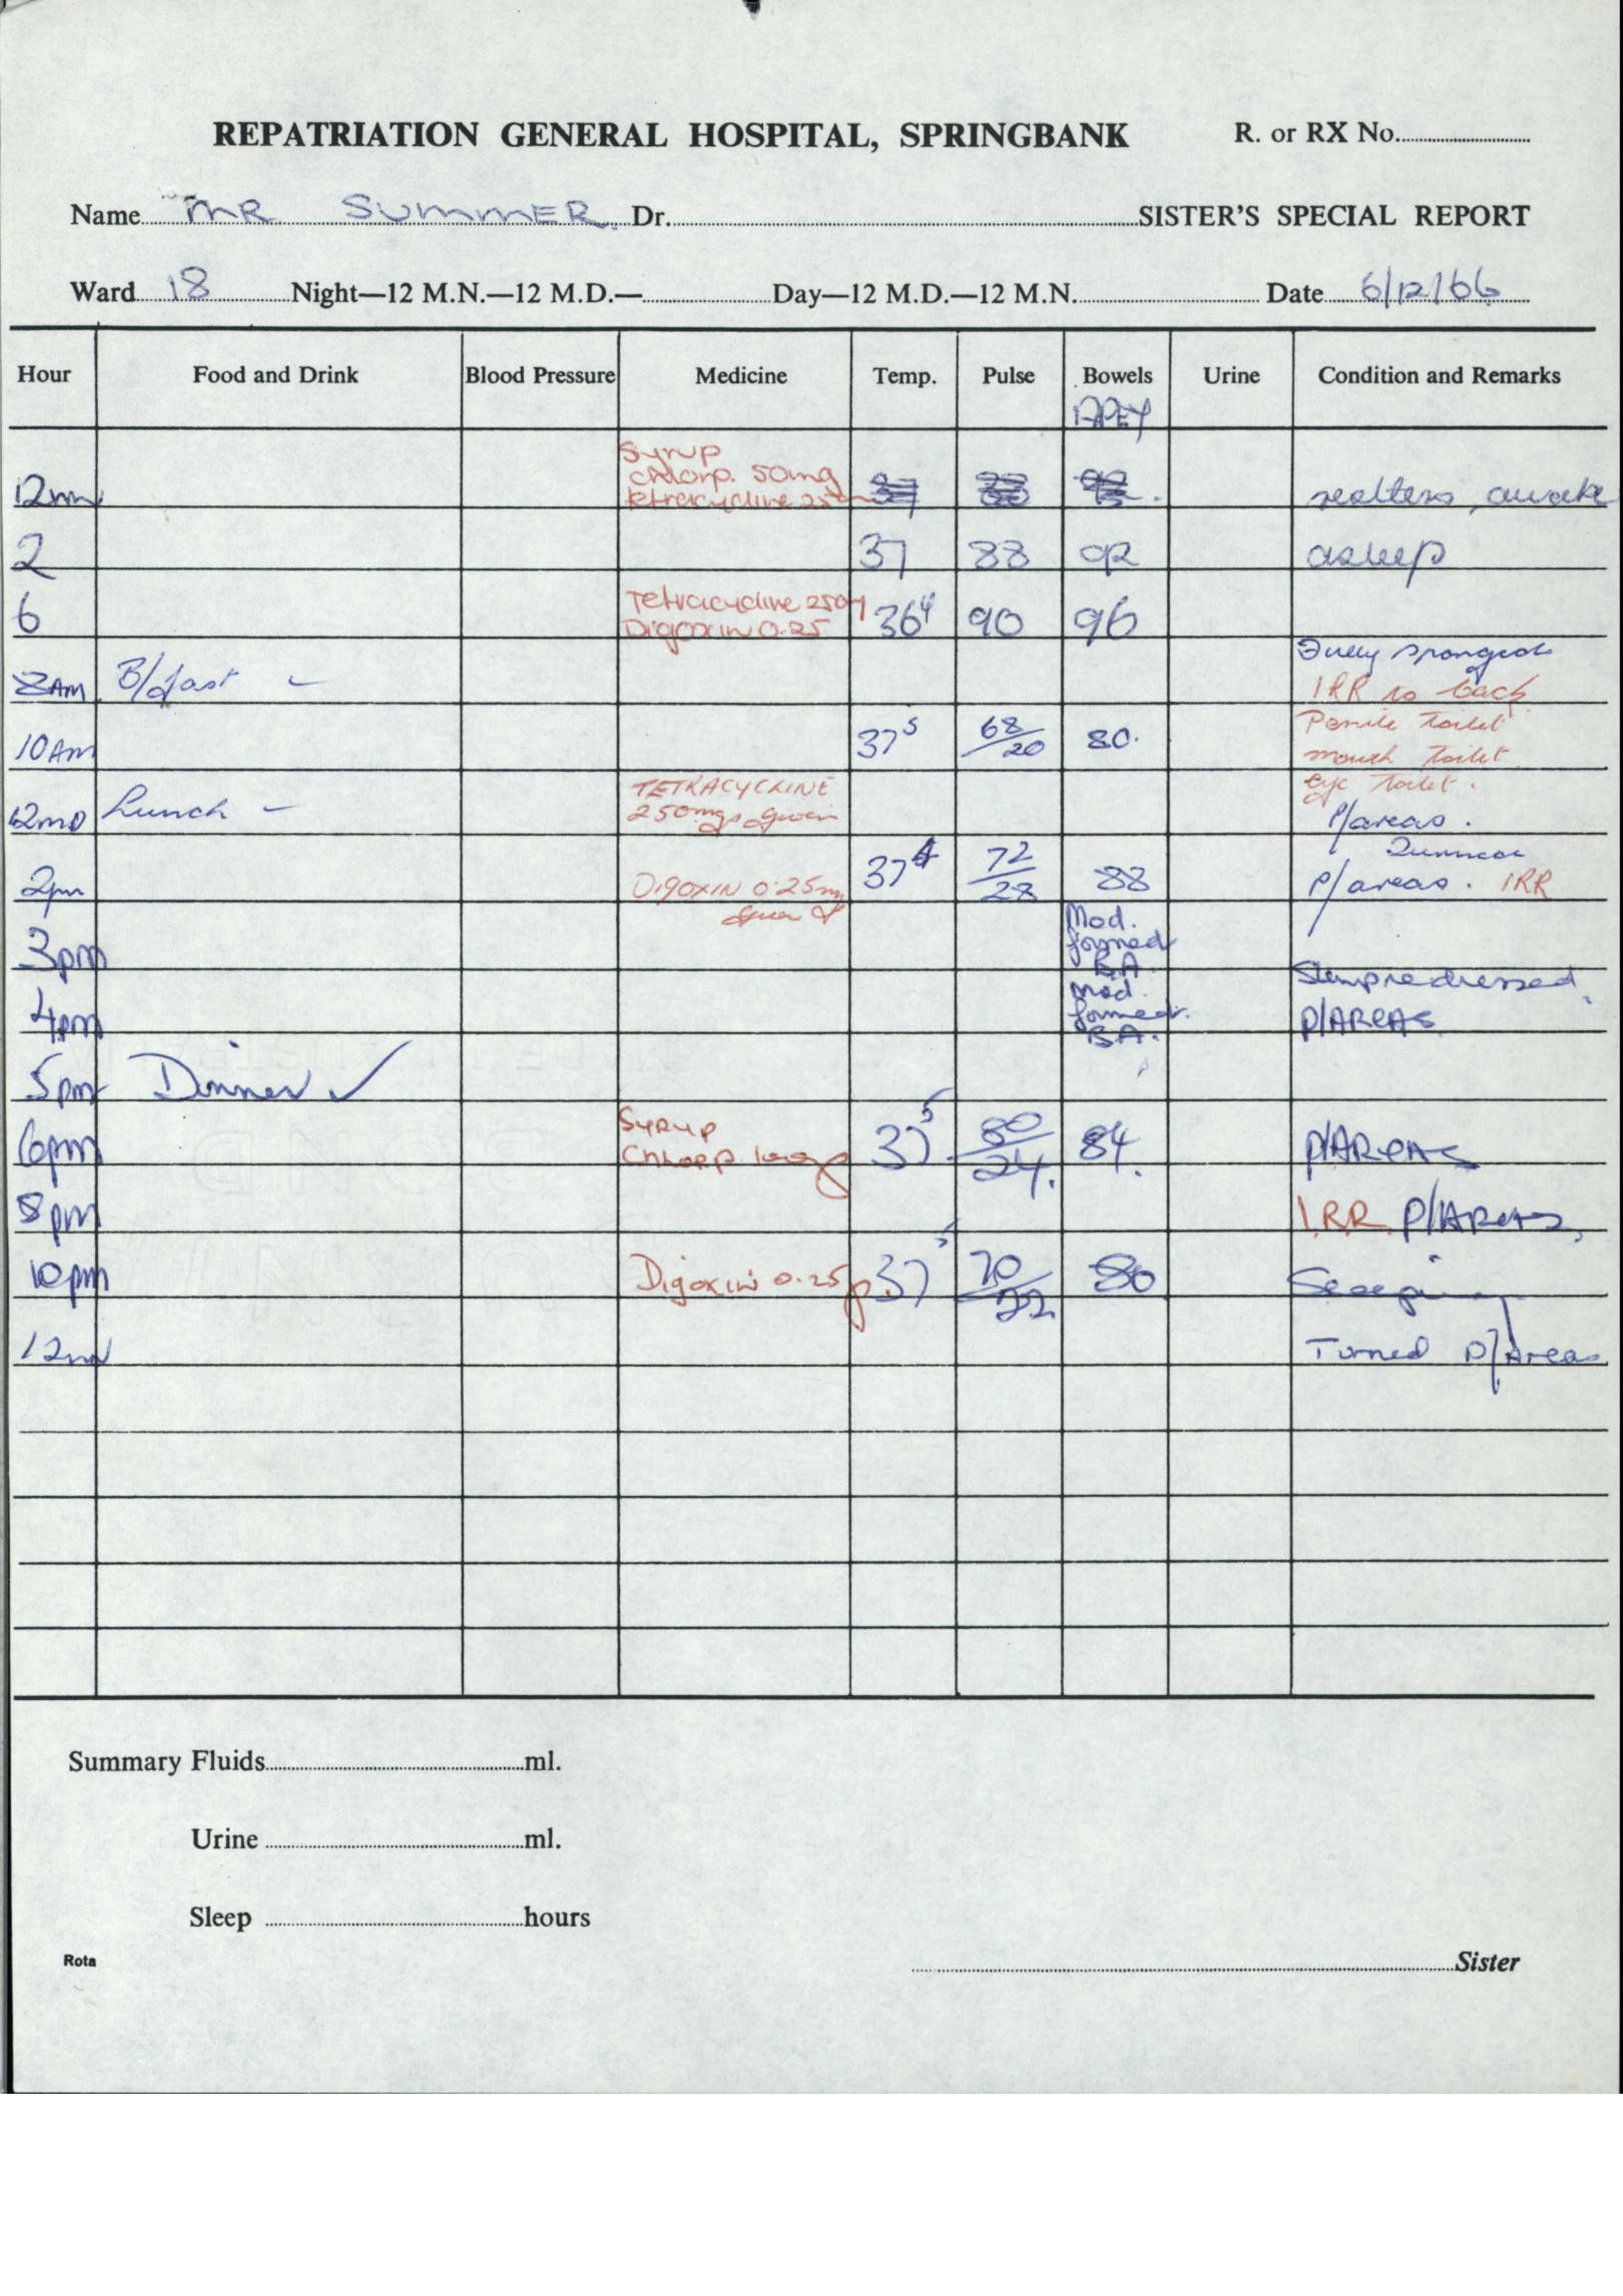 REPATRIATION GENERAL HOSPITAL, SPRINGBANK R. or RX No.
Name MR SUMMER. Dr. SISTER'S SPECIAL REPORT
Ward 18 Night—12 M.N.—12 M.D.— Day—12 M.D.—12 M.N. Date 6/12/66
Hour Food and Drink Blood Pressure Medicine Temp. Pulse Bowels Urine Condition and Remarks
APEX
Syrup
chlorp. 50mg
12mn tetracycline 25 awake
2 37 88 92 asleep
Tetracycline 250
6 Digoxin 0.25 36⁴ 90 96
Fully sponged
8AM B/fast – IRR to back
Penile Toilet
10AM 37⁵ 68/20 80. mouth Toilet
TETRACYCLINE eye Toilet.
12MD Lunch – 250mgs given P/areas.
2pm DIGOXIN 0.25mg 37⁴ 72/28 88 P/areas. IRR
given
Mod.
formed
3pm B.A.
Mod. Stump redressed.
4pm formed. P/AREAS
B.A.
5pm Dinner ✓
Syrup
6pm Chlorp 100 37⁵ 80/24. 84. P/AREAS
8pm I.R.R. P/AREAS,
10pm Digoxin 0.25 37⁵ 70/22 80 Sleeping
12mn Turned P/Areas
Summary Fluids ml.
Urine ml.
Sleep hours
Rota Sister